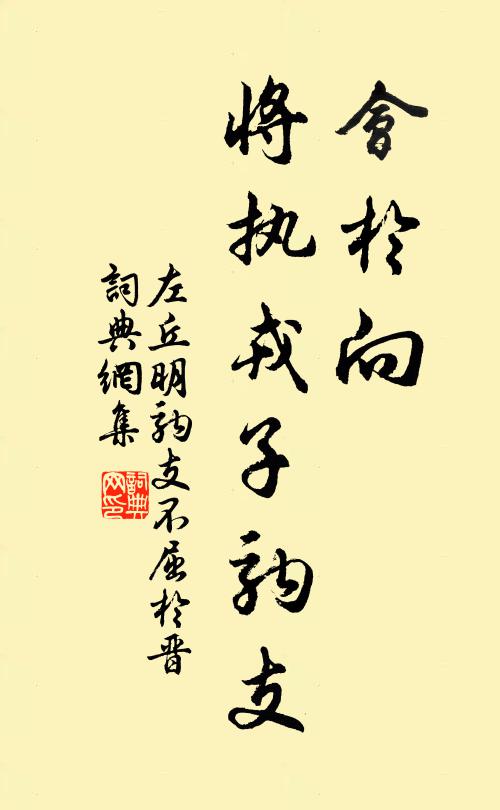 會於向
將执戎子駒支
左丘明駒支不屈於晋
詞典網集
詞典網印